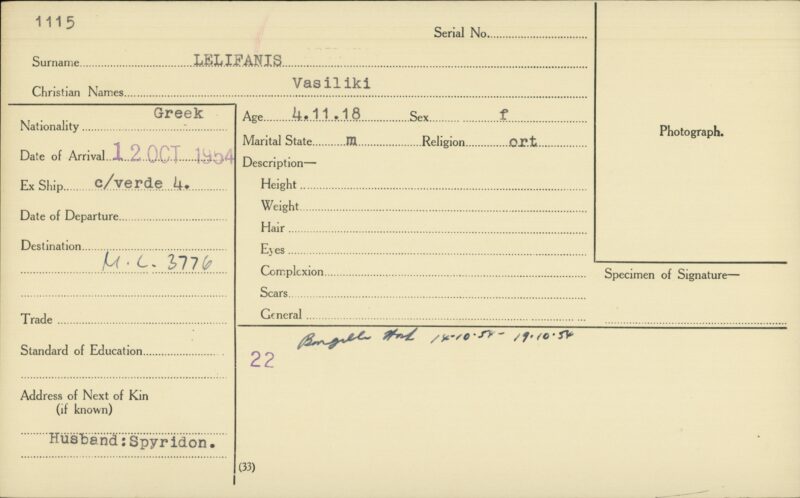 1115
Serial No.
Surname LELIFANIS
Christian Names Vasiliki
Nationality Greek
Date of Arrival 12 OCT 1954
Ex Ship c/verde 4.
Date of Departure
Destination
M. C. 3776
Trade
Standard of Education
Address of Next of Kin
(if known)
Husband:Spyridon.
Age 4.11.18 Sex f
Marital State m Religion ort
Description—
Height
Weight
Hair
Eyes
Complexion
Scars
General
Photograph.
Specimen of Signature—
Bonegilla Hosp 14-10-54 - 19-10-54
22
(33)